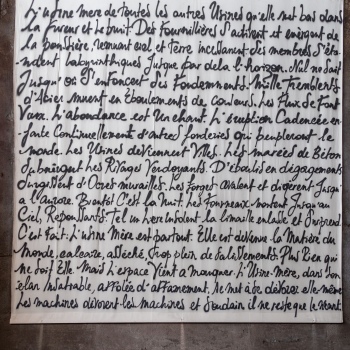 L'usine mère de toutes les autres Usines qu'elle met bas dans
la fureur et le bruit. Des fourmilières s'activent et émergent de
la poussière, remuant ciel et Terre incessant des membres s'éten
dent labyrinthiques jusque par delà l'horizon. Nul ne sait
Jusqu'où s'enfoncent ses Fondements. Mille Tremblents
d'Acier Muent en Éboulements de couleurs. Les Flux de Font
Vaux. L'abondance est Un chant. L'éruption Cadencée en-
fante Continuellement d'autres fonderies qui peupleront le
monde. Les Usines deviennent Villes. Les marées de Béton
Submergent les Rivages Verdoyants. D'éboulis en dégagements
surgissent d'Ocres murailles. Les Forges avalent et digèrent Jusqu'
à l'Aurore. Bientôt C'est la Nuit. Les Fourneaux montent Jusqu'au
Ciel, Repoussants. Tel un hère Insolent la limaille enlace et surprend
C'est Fait. L'usine Mère est partout. Elle est devenue la Matière du
Monde, calcaire, asséché, trop plein de Salissements. Plus Rien qui
ne soit Elle. Mais l'espace Vient à manquer. L'Usine-mère, dans son
élan Insatiable, affolée d'affairement, se met à se dévorer elle-même
Les machines dévorent les machines et Soudain il ne reste que le Néant.